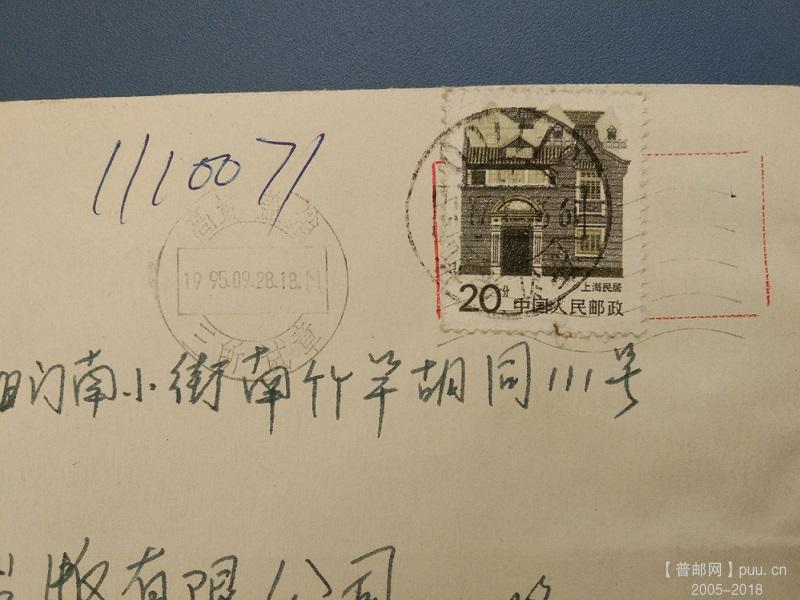 1110071
19 95.09.28.18.M
三所试章
20分
上海民居
中国人民邮政
门南小街南竹竿胡同111号
版有限公司
【普邮网】puu.cn
2005-2018